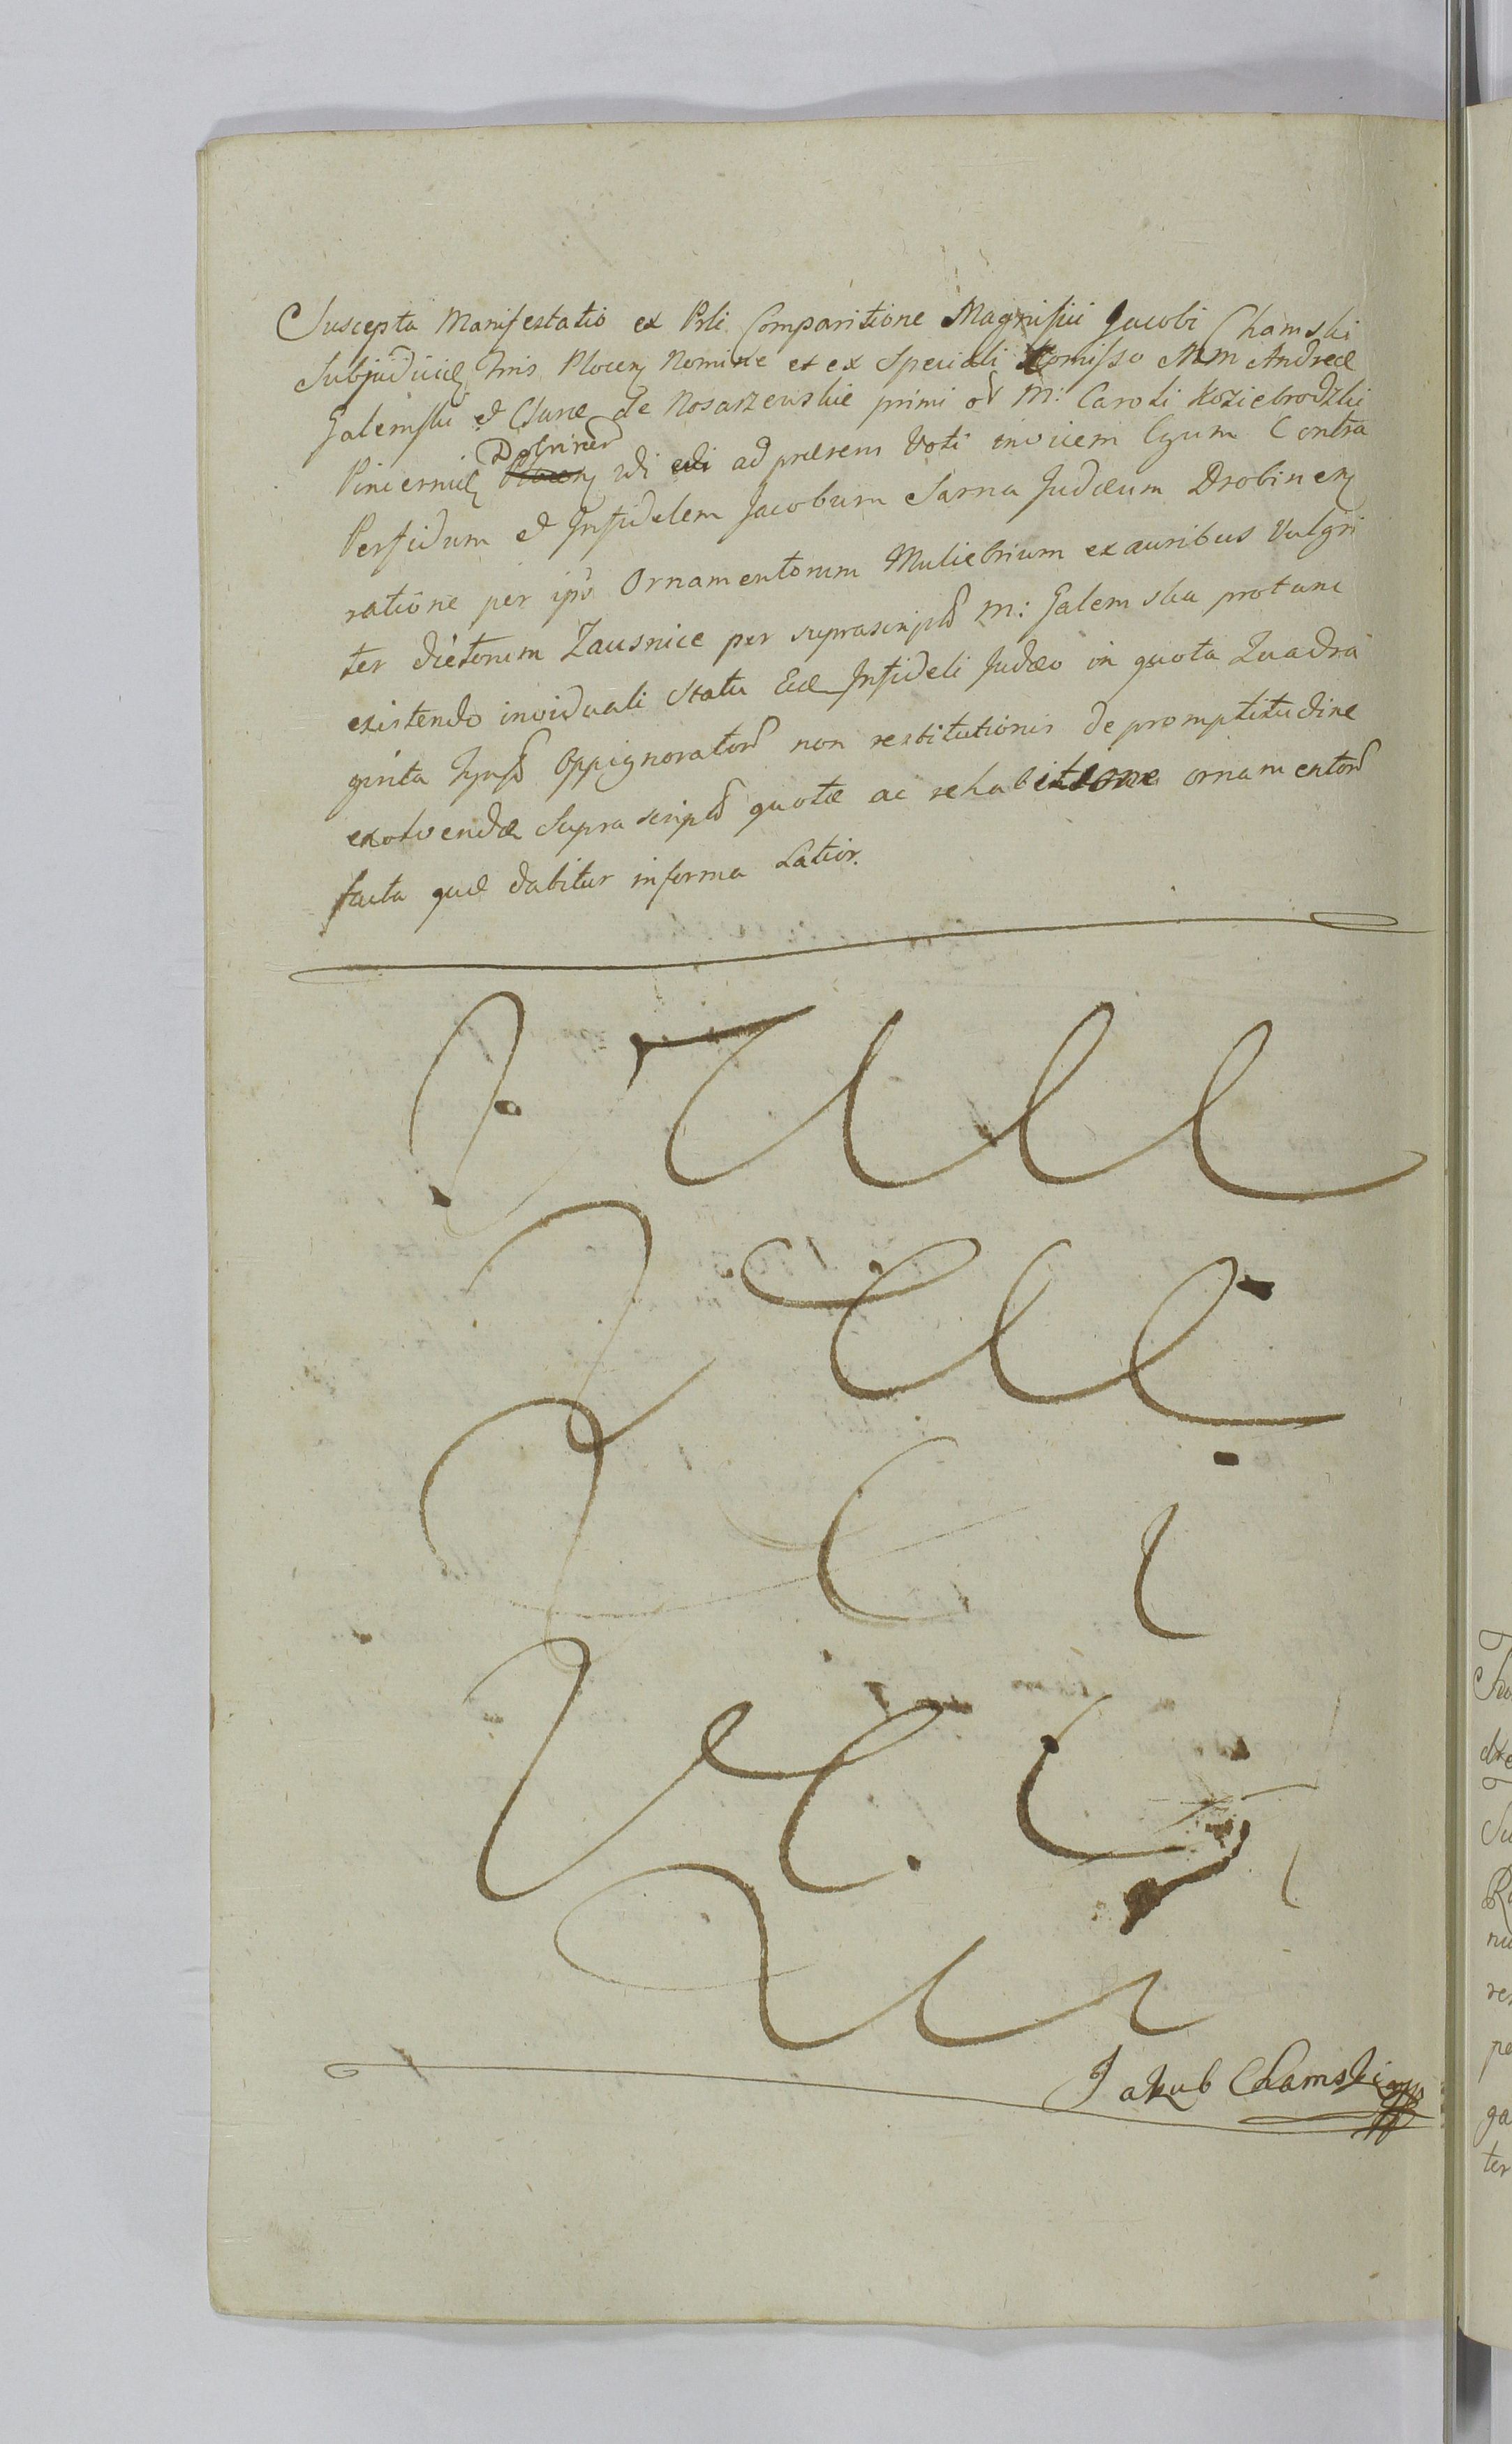 Suscepta Manifestatio ex Prli Comparitione Magnifici Jacobi Chamski
Subjudicis Tris Plocen Nomine et ex Speciali Comisso MM Andreæ
Galemski et Clare de Nosarzewskie primi o M: Caroli Koziebrodzki
Dobrinen
Pincernæ Plocen di ad præsens Voti invicem Cgum Contra
Perfidum et Infidelem Jacobum Sarna Judæum Drobinen
ratione per ips Ornamentorum Muliebrium ex auribus Vulgri
ter dictorum Zausnice per suprascript M: Galemska protunc
existendo inviduali Statu Eid Infideli Judæo in quota Quadra
ginta Tynf Oppignorator non restitutionis de promptitudine
exolvendæ Supra script quotæ ac rehabitione ornamentor
facta quæ dabitur in forma Latior.
Jakub Chamski